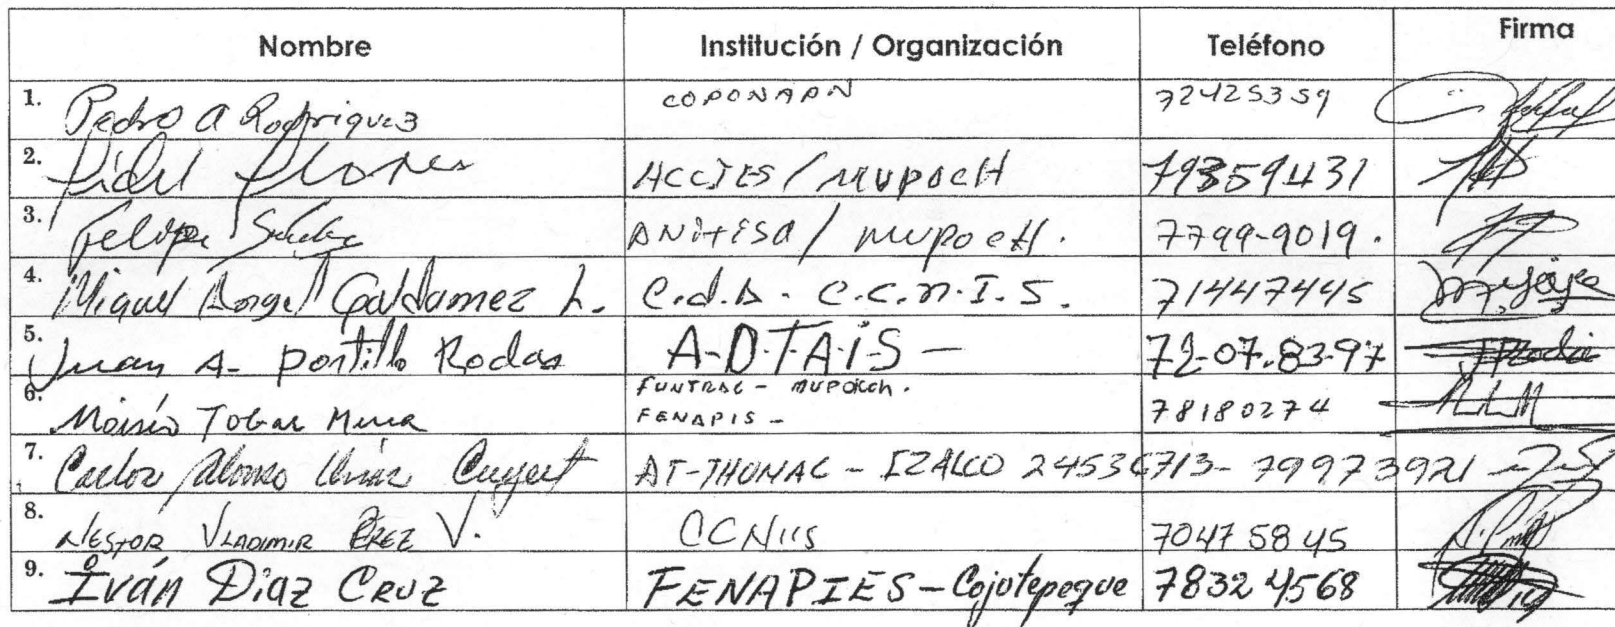 Nombre Institución / Organización Teléfono Firma
1. Pedro A Rodriguez COPONAPN 72425359
2. Fidel Flores ACCIES / MUPOCH 79359431
3. Felipe ANITISA / MUPOCH. 7799-9019.
4. Miguel Angel Galdamez L. C.d.A. C.C.N.I.S. 71447445
5. Juan A- Portillo Rodas A-D-T-A-I-S- 72-07.83-97
FUNTRAC - MUPOCCH.
6. Moisés Tobar Mena FENAPIS - 78180274
7. Carlos Alonso AT-THONAC - IZALCO 24536713- 79973921
8. NESTOR VLADIMIR PÉREZ V. CCNIIS 7047 5845
9. Iván Diaz CRUZ FENAPIES - Cojutepeque 7832 4568